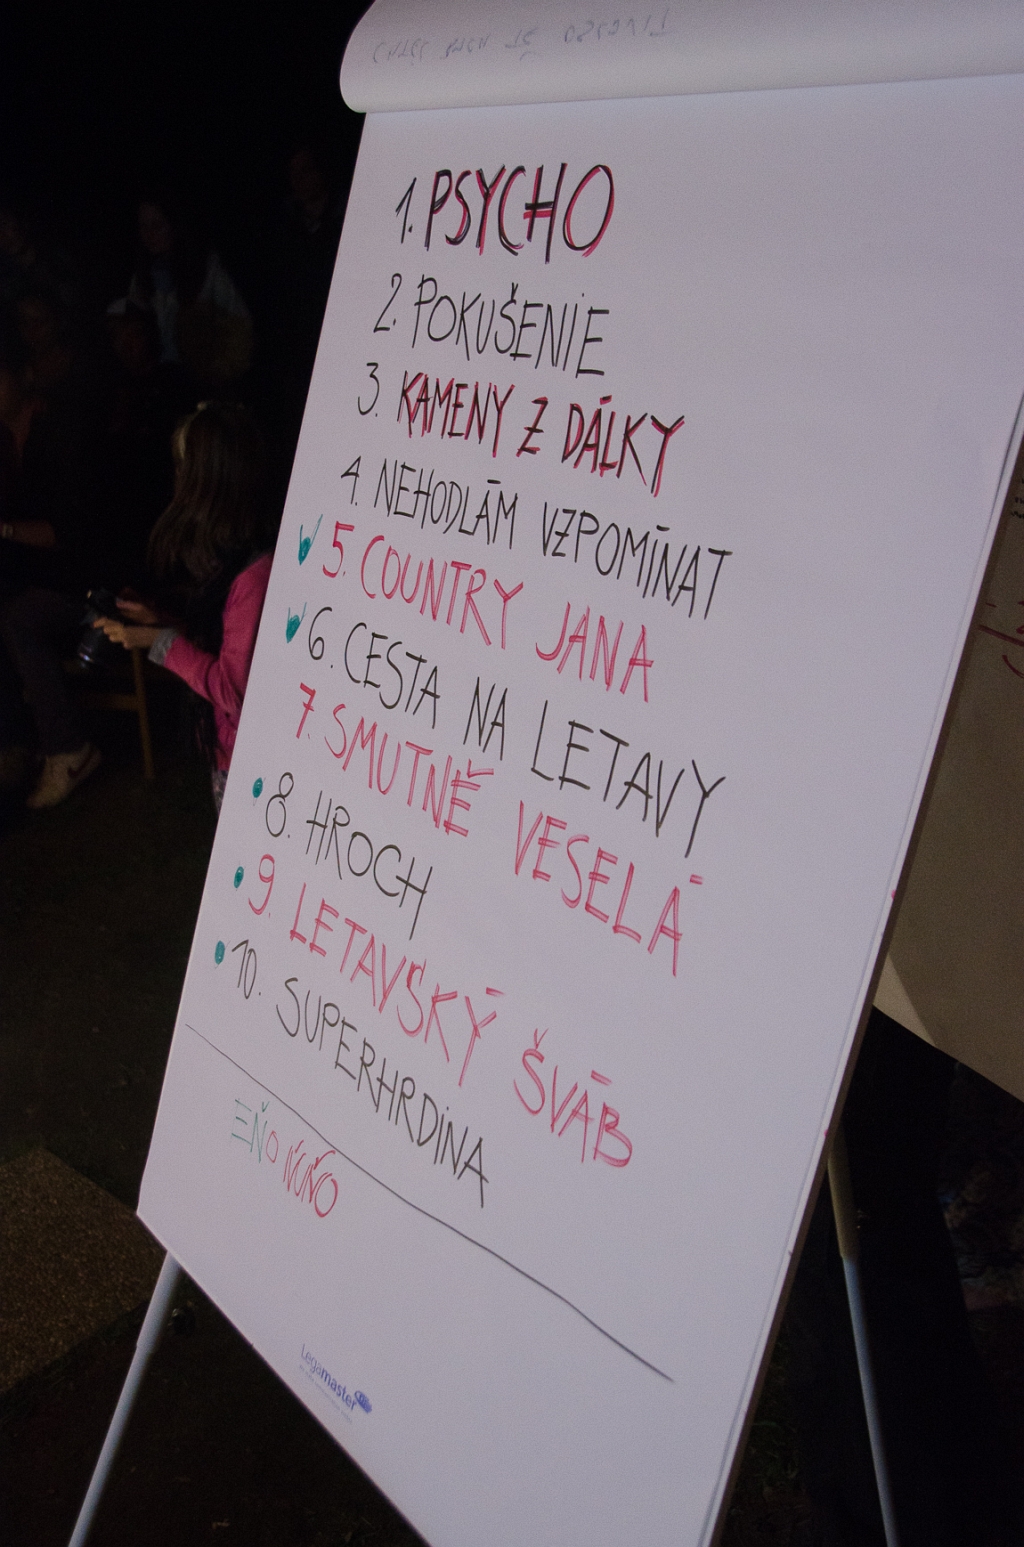 1. PSYCHO
2. POKUŠENIE
3. KAMENY Z DÁLKY
4. NEHODLÁM VZPOMÍNAT
5. COUNTRY JANA
6. CESTA NA LETAVY
7. SMUTNĚ VESELÁ
8. HROCH
9. LETAVSKÝ ŠVÁB
10. SUPERHRDINA
EŇO ŇUŇO
Legamaster